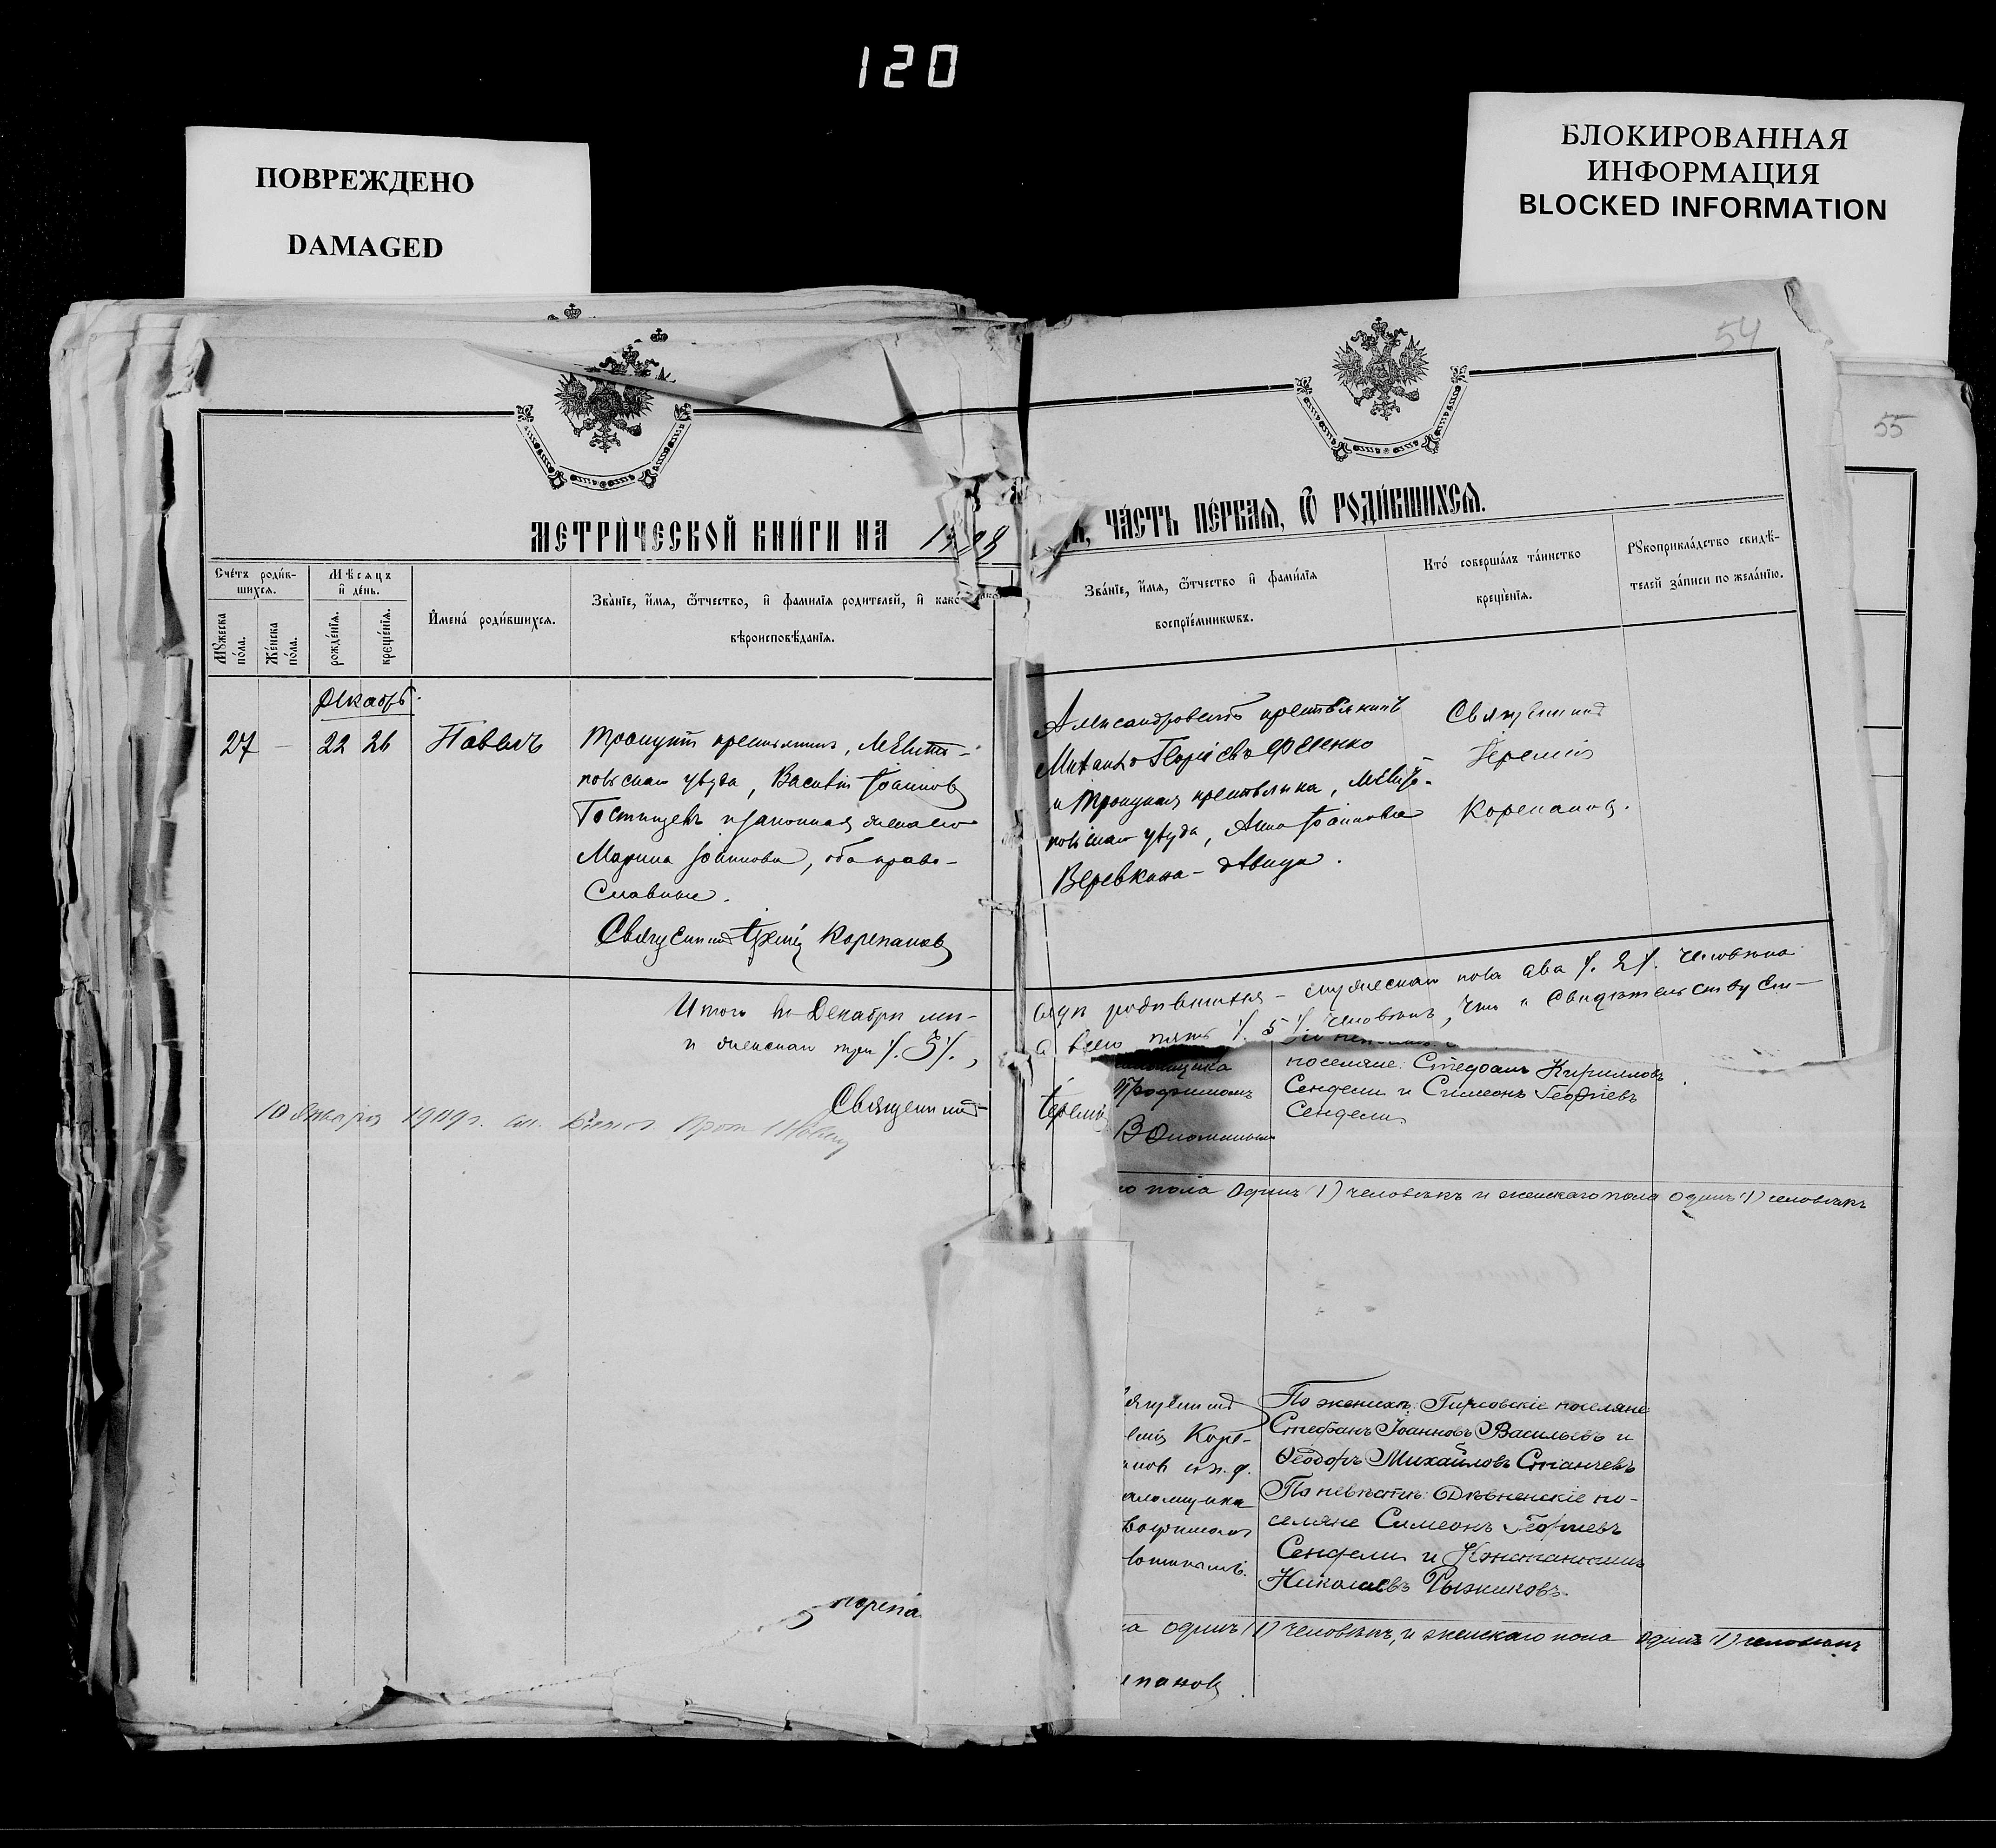 120
ПОВРЕЖДЕНО
DAMAGED
БЛОКИРОВАННАЯ
ИНФОРМАЦИЯ
BLOCKED INFORMATION
54
55
МЕТРИ́ЧЕСКОЙ КНИ́ГИ НА 1908
ЧА́СТЬ ПЕ́РВАЯ, Ѿ РОДИ́ВШИХСЯ.
Сче́тъ роди́в-
шихся.
Мꙋ́жеска по́ла.
Же́нска по́ла.
Мѣ́сяцъ
и҆ де́нь.
рожде́нїя.
креще́нїя.
И҆мена̀ роди́вшихся.
Зва́нїе, и҆́мя, ѻ҆́тчество, и҆ фами́лїя роди́телей, и҆ како
вѣроисповѣ́данїя.
Зва́нїе, и҆́мя, ѻ҆́тчество и҆ фами́лїя
воспрїе́мникѡвъ.
Кто́ соверша́лъ та́инство
креще́нїя.
Рꙋкоприкла́дство свидѣ́-
телей за́писи по жела́нїю.
Декабрь.
27 - 22 26 Павелъ
Троицкій крестьянинъ, Мелито-
польскаго уѣзда, Василій Іоанновъ
Гостищевъ и законная жена его
Марина Іоаннова, оба право-
славные.
Священникъ Іеремія Корепановъ
Александровскій крестьянинъ
Михаилъ Георгіевъ Фесенко
и Троицкая крестьянка, Мелито-
польскаго уѣзда, Анна Іоаннова
Веревкина - дѣвица.
Священникъ
Іеремія
Корепановъ.
Итого въ Декабрѣ мѣ-
сяцѣ родившихся - мужескаго пола два /. 2 /. человѣка
и женскаго три /. 3 /.,
а всего пять /. 5 /. человѣкъ, что и свидѣтельствуемъ
Священникъ Іеремія
10 января 1909 г.
Трофимомъ
поселяне: Стефанъ Кирилловъ
Сендели и Симеонъ Георгіевъ
Сендели
пола одинъ (1) человѣкъ и женскаго пола одинъ (1) человѣкъ
По женихѣ: Гирсовскіе поселяне
Стефанъ Іоанновъ Васильевъ и
Ѳеодоръ Михайловъ Станчевъ
По невѣстѣ: Дѣвненскіе по-
селяне Симеонъ Георгіевъ
Сендели и Константинъ
Николаевъ Рыжиковъ.
одинъ (1) человѣкъ, и женскаго пола одинъ (1) человѣкъ
пановъ